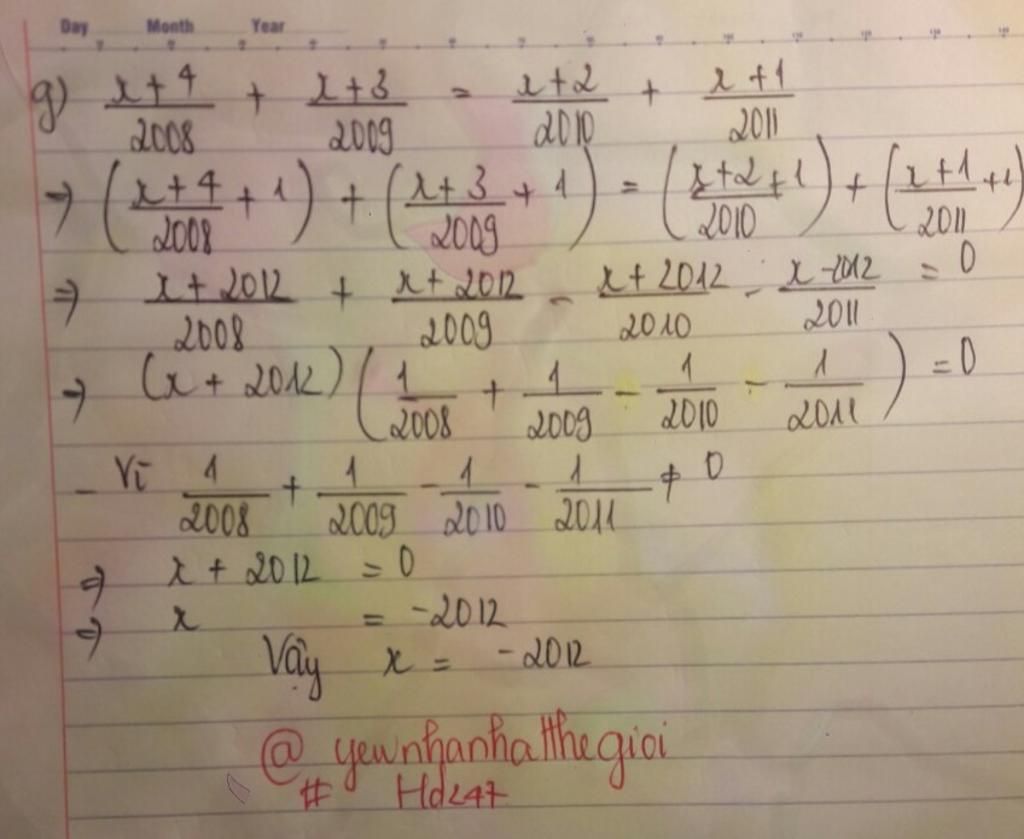 Day Month Year
g) \frac{x+4}{2008} + \frac{x+3}{2009} = \frac{x+2}{2010} + \frac{x+1}{2011}
⇒ (\frac{x+4}{2008} + 1) + (\frac{x+3}{2009} + 1) = (\frac{x+2}{2010} + 1) + (\frac{x+1}{2011} + 1)
⇒ \frac{x+2012}{2008} + \frac{x+2012}{2009} - \frac{x+2012}{2010} - \frac{x-2012}{2011} = 0
⇒ (x + 2012) (\frac{1}{2008} + \frac{1}{2009} - \frac{1}{2010} - \frac{1}{2011}) = 0
- Vì \frac{1}{2008} + \frac{1}{2009} - \frac{1}{2010} - \frac{1}{2011} ≠ 0
⇒ x + 2012 = 0
⇒ x = -2012
Vậy x = -2012
@ yewnhanhatthegioi
# Hd247